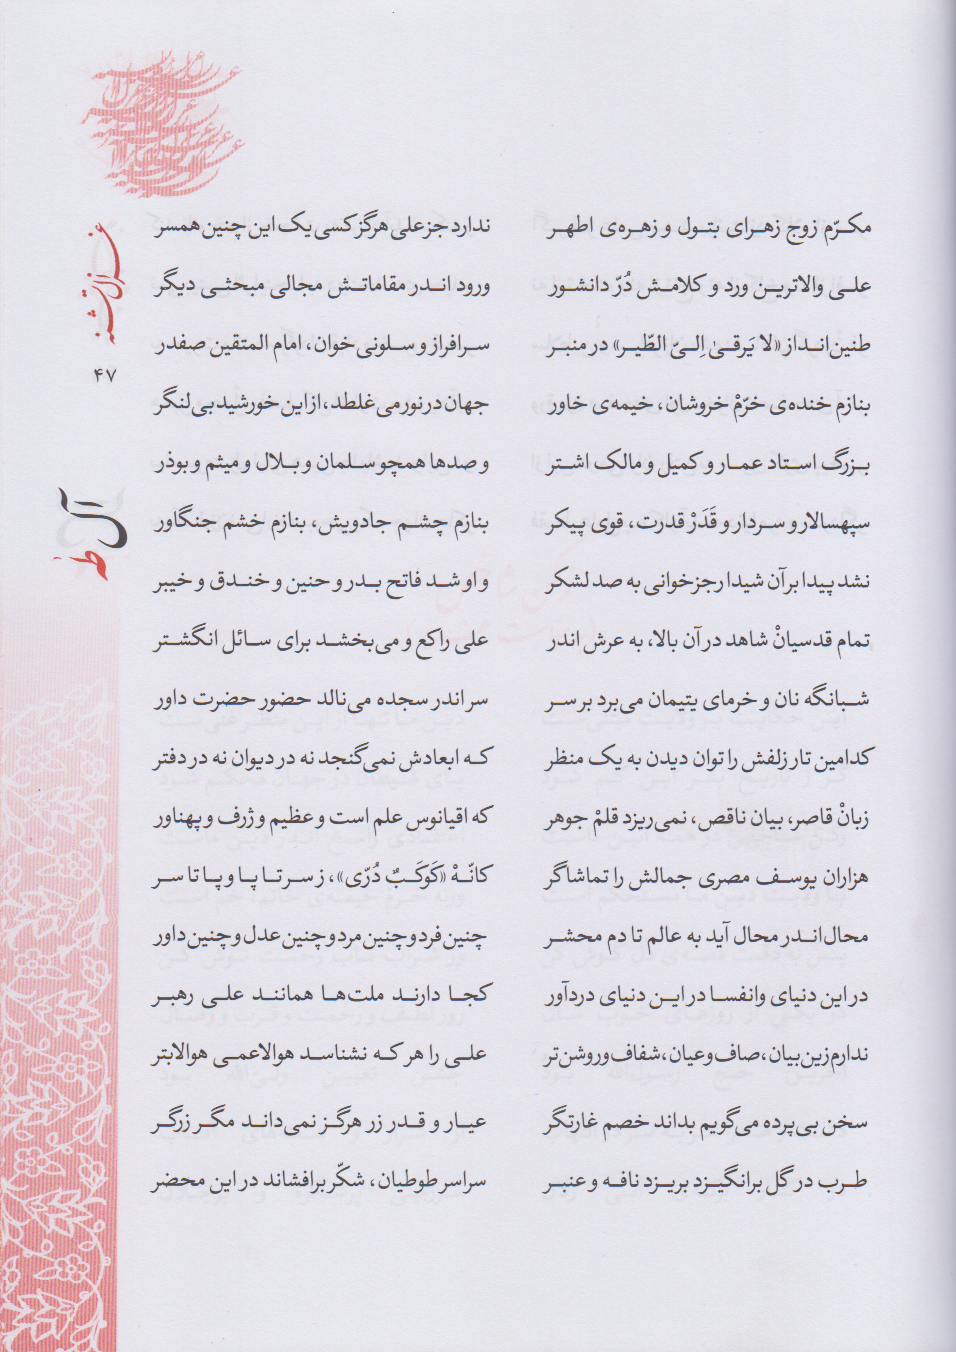 مکرّم زوج زهرای بتول و زهره‌ی اطهر ندارد جز علی هرگز کسی یک این چنین همسر
علی والاترین ورد و کلامش دُرّ دانشور ورود اندر مقاماتش مجالی مبحثی دیگر
طنین‌انداز «لا یَرقیٰ اِلیّ الطّیر» در منبر سرافراز و سلونی‌خوان، امام المتقین صفدر
بنازم خنده‌ی خرّمْ خروشان، خیمه‌ی خاور جهان در نور می‌غلطد، از این خورشید بی‌لنگر
بزرگ استاد عمار و کمیل و مالک اشتر و صدها همچو سلمان و بلال و میثم و بوذر
سپهسالار و سردار و قَدَرْ قدرت، قوی پیکر بنازم چشم جادویش، بنازم خشم جنگاور
نشد پیدا بر آن شیدا رجزخوانی به صد لشکر و او شد فاتح بدر و حنین و خندق و خیبر
تمام قدسیانْ شاهد در آن بالا، به عرش اندر علی راکع و می‌بخشد برای سائل انگشتر
شبانگه نان و خرمای یتیمان می‌برد بر سر سر اندر سجده می‌نالد حضور حضرت داور
کدامین تار زلفش را توان دیدن به یک منظر که ابعادش نمی‌گنجد نه در دیوان نه در دفتر
زبانْ قاصر، بیان ناقص، نمی‌ریزد قلمْ جوهر که اقیانوس علم است و عظیم و ژرف و پهناور
هزاران یوسف مصری جمالش را تماشاگر کانّهْ «کَوکَبٌ دُرّی»، ز سر تا پا و پا تا سر
محال اندر محال آید به عالم تا دم محشر چنین فرد و چنین مرد و چنین عدل و چنین داور
در این دنیای وانفسا در این دنیای دردآور کجا دارند ملت‌ها همانند علی رهبر
ندارم زین بیان، صاف و عیان، شفاف و روشن‌تر علی را هر که نشناسد هوالاعمی هوالابتر
سخن بی‌پرده می‌گویم بداند خصم غارتگر عیار و قدر زر هرگز نمی‌داند مگر زرگر
طرب در گل برانگیزد بریزد نافه و عنبر سراسر طوطیان، شکّر برافشاند در این محضر
۴۷